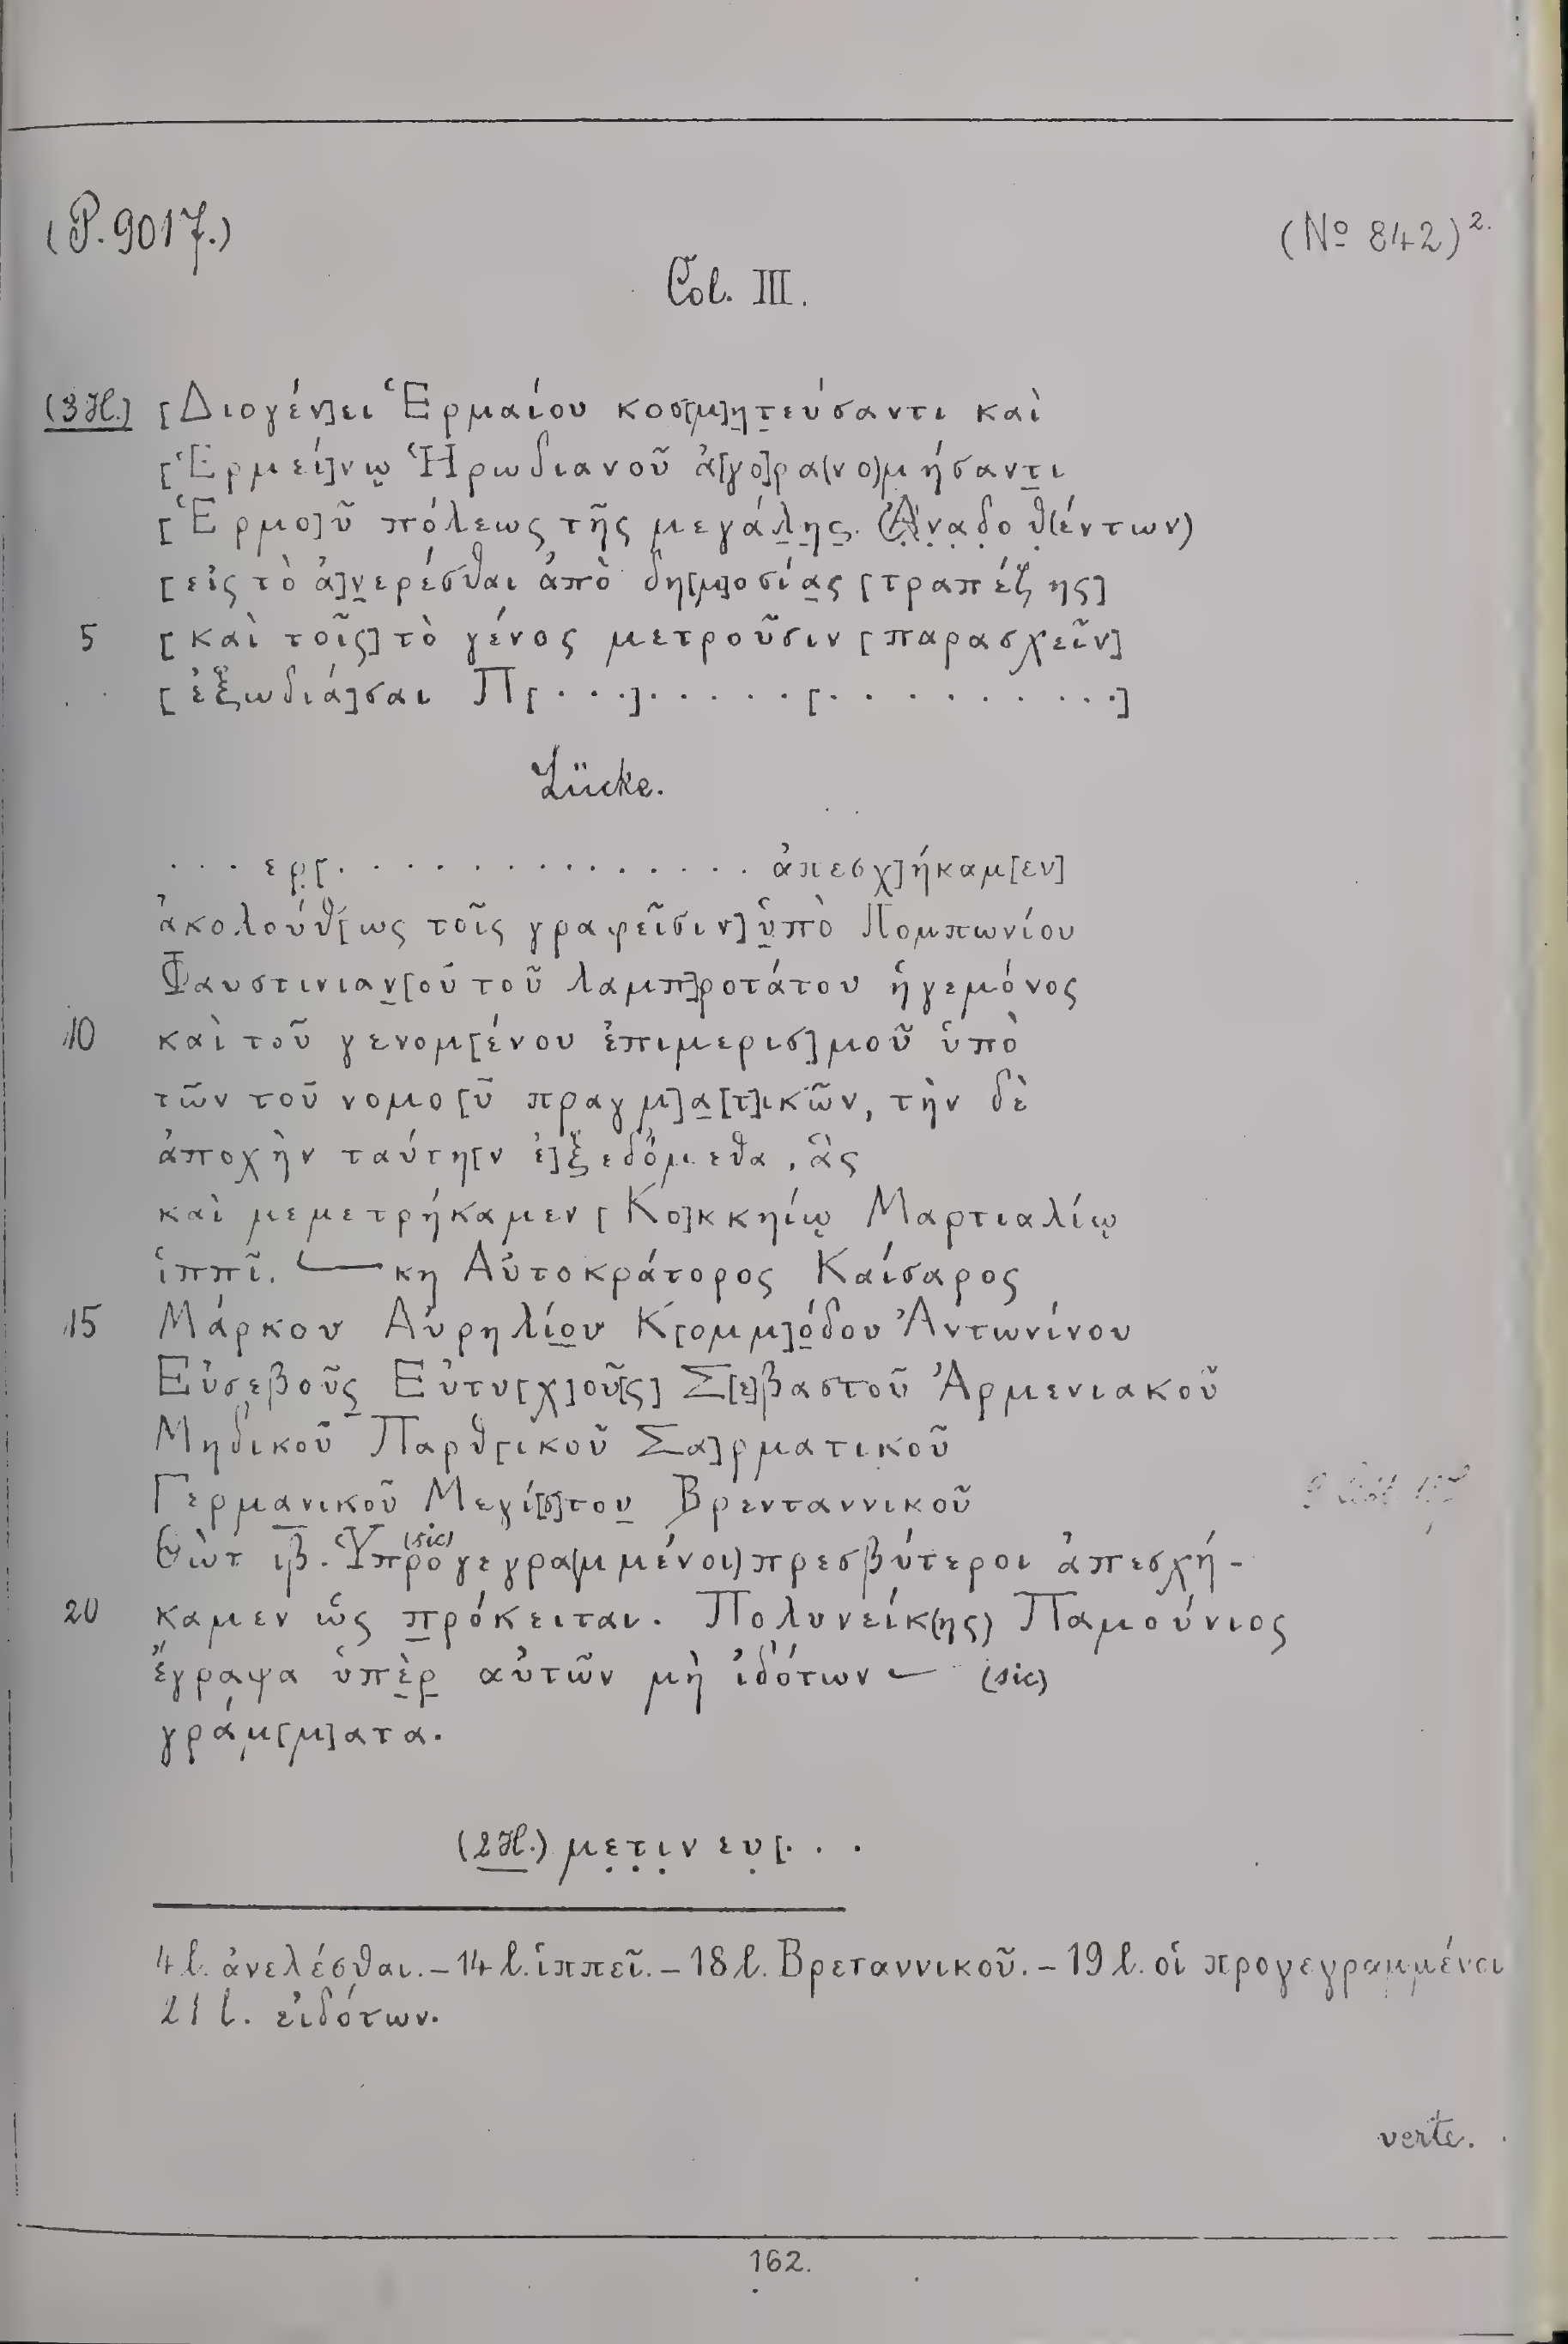 (P. 9017.)
(No 842)2.
Col. III.
(3 H.) [Διογέν]ει Ἑρμαίου κοσ[μ]ητεύσαντι καὶ
[Ἑρμεί]νῳ Ἡρωδιανοῦ ἀ[γο]ρα(νο)μήσαντι
[Ἑρμο]ῦ πόλεως τῆς μεγάλης. (Ἀναδοθ(έντων)
[εἰς τὸ ἀ]νερέσθαι ἀπὸ δη[μ]οσίας [τραπέζης]
5 [καὶ τοῖς] τὸ γένος μετροῦσιν [παρασχεῖν]
[ἐξωδιά]σαι Π[. . .]. . . . . .[. . . . . . . . . .]
Lücke.
. . . ερ[. . . . . . . . . . . . . . . ἀπεσχ]ήκαμ[εν]
ἀκολούθ[ως τοῖς γραφεῖσιν] ὑπὸ Πομπωνίου
Φαυστινιαν[οῦ τοῦ λαμπ]ροτάτου ἡγεμόνος
10 καὶ τοῦ γενομ[ένου ἐπιμερισ]μοῦ ὑπὸ
τῶν τοῦ νομο[ῦ πραγμ]α[τ]ικῶν, τὴν δὲ
ἀποχὴν ταύτη[ν ἐ]ξεδόμεθα, ἃς
καὶ μεμετρήκαμεν [Κο]κκηίῳ Μαρτιαλίῳ
ἱππῖ. κη Αὐτοκράτορος Καίσαρος
15 Μάρκου Αὐρηλίου Κ[ομμ]όδου Ἀντωνίνου
Εὐσεβοῦς Εὐτυ[χ]οῦ[ς] Σ[ε]βαστοῦ Ἀρμενιακοῦ
Μηδικοῦ Παρθ[ικοῦ Σα]ρματικοῦ
Γερμανικοῦ Μεγί[σ]του Βρενταννικοῦ
Θὼτ ιβ. Ὑπρογεγρα(μμένοι) πρεσβύτεροι ἀπεσχή-
(sic)
20 καμεν ὡς πρόκειται. Πολυνείκ(ης) Παμούνιος
ἔγραψα ὑπὲρ αὐτῶν μὴ ἰδότων (sic)
γράμ[μ]ατα.
(2 H.) μετιν ευ[. . .
4 l. ἀνελέσθαι. – 14 l. ἱππεῖ. – 18 l. Βρεταννικοῦ. – 19 l. οἱ προγεγραμμένοι
21 l. εἰδότων.
verte.
162.